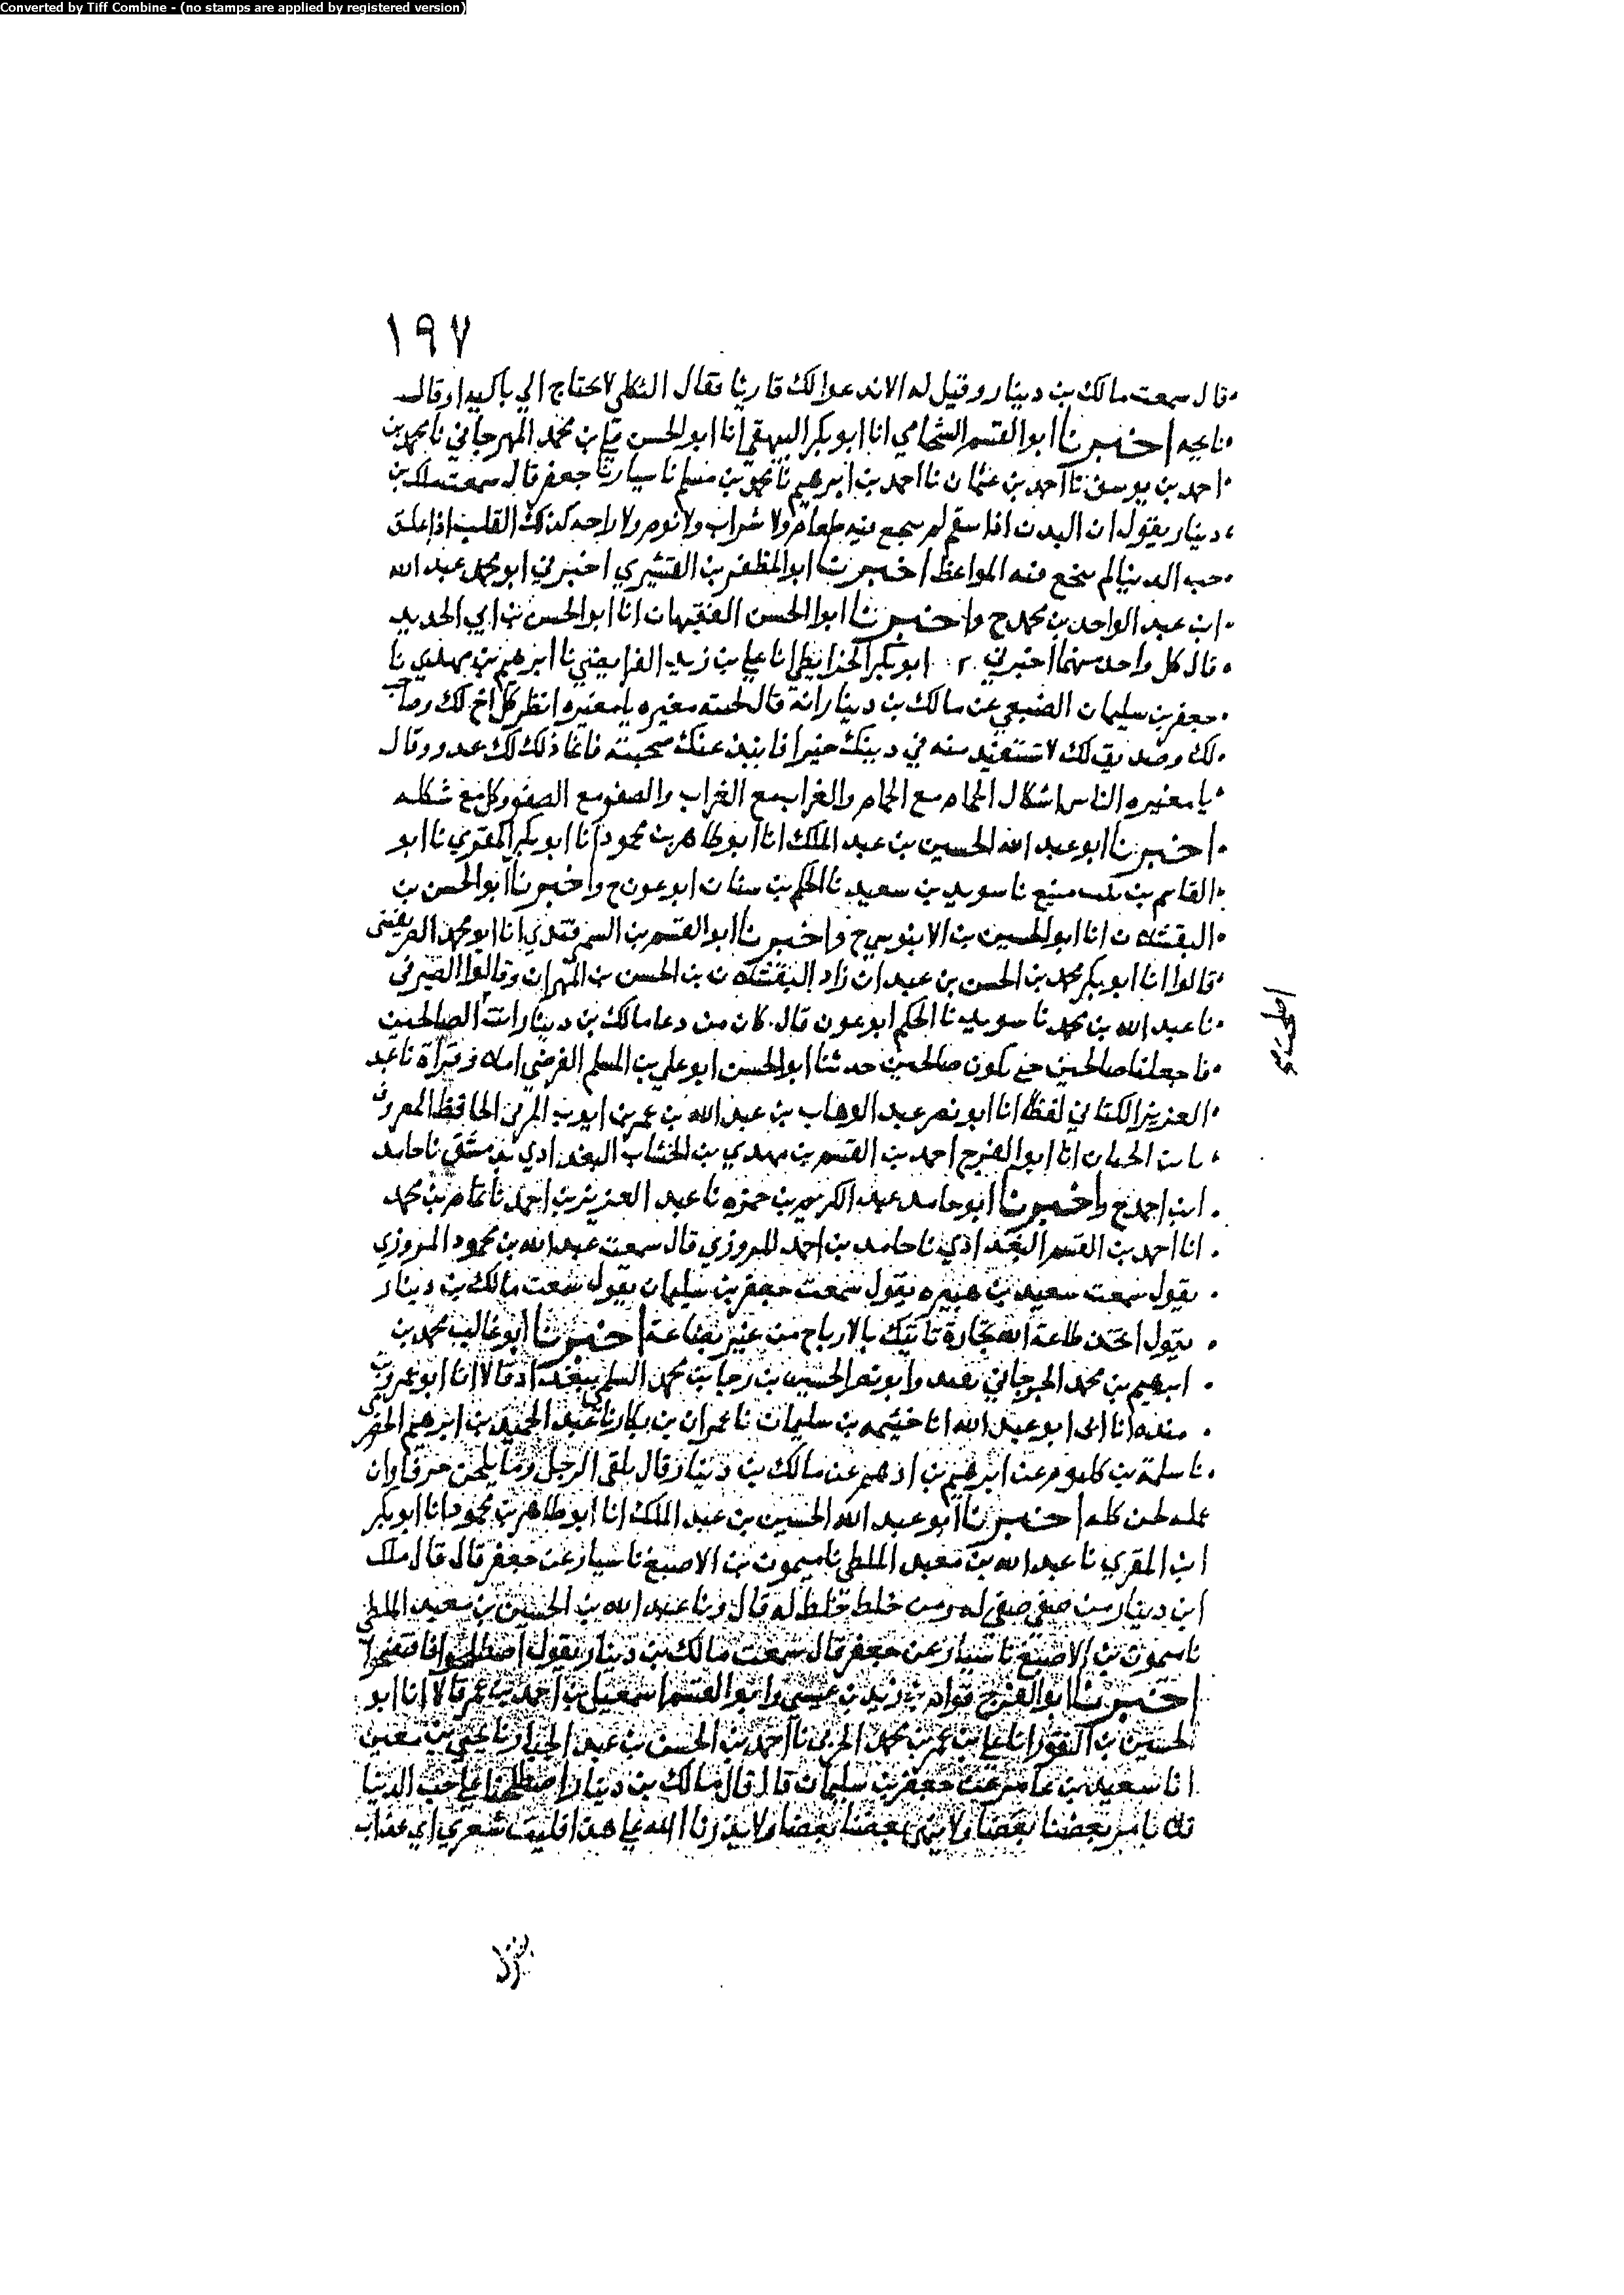 Converted by Tiff Combine - (no stamps are applied by registered version)
١٩٧
قال سمعت مالك بن دينار وقيل له الا ندعوا لك قاريا فقال الثكلي لا تحتاج الي باكيه او قال
نايحه اخبرنا ابو القسم الشحامي انا ابو بكر البيهقي انا ابو الحسن علي بن محمد المهرجاني نا محمد بن
احمد بن يوسف نا احمد بن عثمان نا احمد بن ابرهيم نا محمد بن مسلم نا سيار نا جعفر قال سمعت ملك بن
دينار يقول ان البدن اذا سقم لم ينجع فيه طعام ولا شراب ولا نوم ولا راحه كذلك القلب اذا علق
حب الدنيا لم ينجع فيه المواعظ اخبرنا ابو المظفر بن القشيري اخبرني ابو محمد عبد الله
ابن عبد الواحد بن محمد ح واخبرنا ابوا الحسن الفقيهان انا ابو الحسن بن ابي الحديد
قال كل واحد منهما اخبرني ابو بكر الخرايطي نا علي بن زيد الفرايضي نا ابرهيم بن مهدي نا
جعفر بن سليمان الضبعي عن مالك بن دينار انه قال لختنه مغيره يا مغيره انظر كل اخ لك وصاحب
لك وصديق لك لا تستفيد منه في دينك خيرا فانبذ عنك صحبته فانما ذلك لك عدو وقال
يا مغيره الناس اشكال الحمام مع الحمام والغراب مع الغراب والصفو مع الصفو وكل مع شكله
اخبرنا ابو عبد الله الحسين بن عبد الملك انا ابو طاهر بن محمود انا ابو بكر المقري نا ابو
القاسم بن منيع نا سويد بن سعيد نا الحكم بن سنان ابو عون ح واخبرنا ابو الحسن بن
البقشلان انا ابو الحسين بن الابنوسي ح واخبرنا ابو القسم بن السمرقندي انا ابو محمد الصريفيني
قالوا انا ابو بكر محمد بن الحسن بن عبدان زاد البقشلان بن الحسن بن المهران وقالوا الصيرفي
نا عبد الله بن محمد نا سويد نا الحكم ابو عون قال كان من دعا مالك بن دينار انت اصلحت الصالحين
فاجعلنا صالحين حتي نكون صالحين حدثنا ابو الحسن ابو علي بن المسلم الفرضي املاه وقراة نا عبد
العزيز الكتاني لفظا انا ابو نصر عبد الوهاب بن عبد الله بن عمر بن ايوب المري الحافظ المعروف
بابن الجبان انا ابو الفرج احمد بن القسم بن مهدي بن الخشاب البغدادي بدمشق نا حامد
ابن احمد ح واخبرنا ابو حامد عبد الكريم بن حمزه نا عبد العزيز بن احمد نا تمام بن محمد
انا احمد بن القسم البغدادي نا حامد بن احمد المروزي قال سمعت عبد الله بن محمود المروزي
يقول سمعت سعيد بن هبيره يقول سمعت جعفر بن سليمان يقول سمعت مالك بن دينار
يقول اتخذ طاعة الله تجارة تاتيك بالارباح من غير بضاعة اخبرنا ابو غالب محمد بن
ابرهيم بن محمد الجرجاني بعبد وابو نصر الحسين بن رجا بن محمد السلمي ببغداد قالا انا ابو عمرو بن
منده انا ابي ابو عبد الله انا خيثمه بن سليمان نا عمران بن بكار نا عبد الحميد بن ابرهيم الحضرمي
نا سلمة بن كلثوم عن ابرهيم بن ادهم عن مالك بن دينار قال تلقى الرجل وما يلحن حرفا وان
عمله لحن كله اخبرنا ابو عبد الله الحسين بن عبد الملك انا ابو طاهر بن محمود انا ابو بكر
ابن المقري نا عبد الله بن سعيد الملطي نا ميمون بن الاصبغ نا سيار عن جعفر قال قال ملك
ابن دينار من صفي صفي له ومن خلط خلط له قال ونا عبد الله بن الحسين بن سعيد الملطي
نا ميمون بن الاصبغ نا سيار عن جعفر قال سمعت مالك بن دينار يقول اصطلحوا
اخبرنا ابو الفرج قوام بن زيد بن عيسى وابو القسم اسمعيل بن احمد بن عمر قالا انا ابو
الحسين بن النقور انا علي بن عمر بن محمد الحربي نا احمد بن الحسن بن عبد الجبار نا يحيى بن معين
انا سعيد بن عامر عن جعفر بن سليمان قال قال مالك بن دينار اصطلحنا علي حب الدنيا
فلا يامر بعضنا بعضا ولا ينهي بعضنا بعضا ولا يذرنا الله علي هذا فليت شعري اي عذاب
اصلحت
ينزل